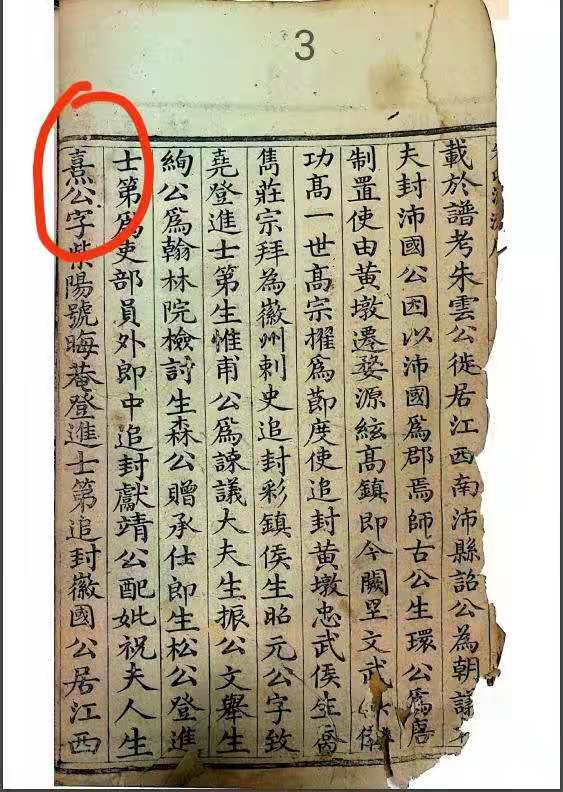 3
載於譜考朱雲公徙居江西南沛縣詔公為朝
夫封沛國公因以沛國爲郡焉師古公生環公爲
制置使由黃墩遷婺源絃高鎮即今闕里文武
功高一世高宗擢爲節度使追封黃墩忠武侯生
雋莊宗拜為徽州刺史追封彩鎮侯生昭元公字致
堯登進士第生惟甫公爲諫議大夫生振公文舉生
絢公爲翰林院檢討生森公贈承仕郎生松公登進
士第爲吏部員外郎中追封獻靖公配妣祝夫人生
熹公字紫陽號晦菴登進士第追封徽國公居江西